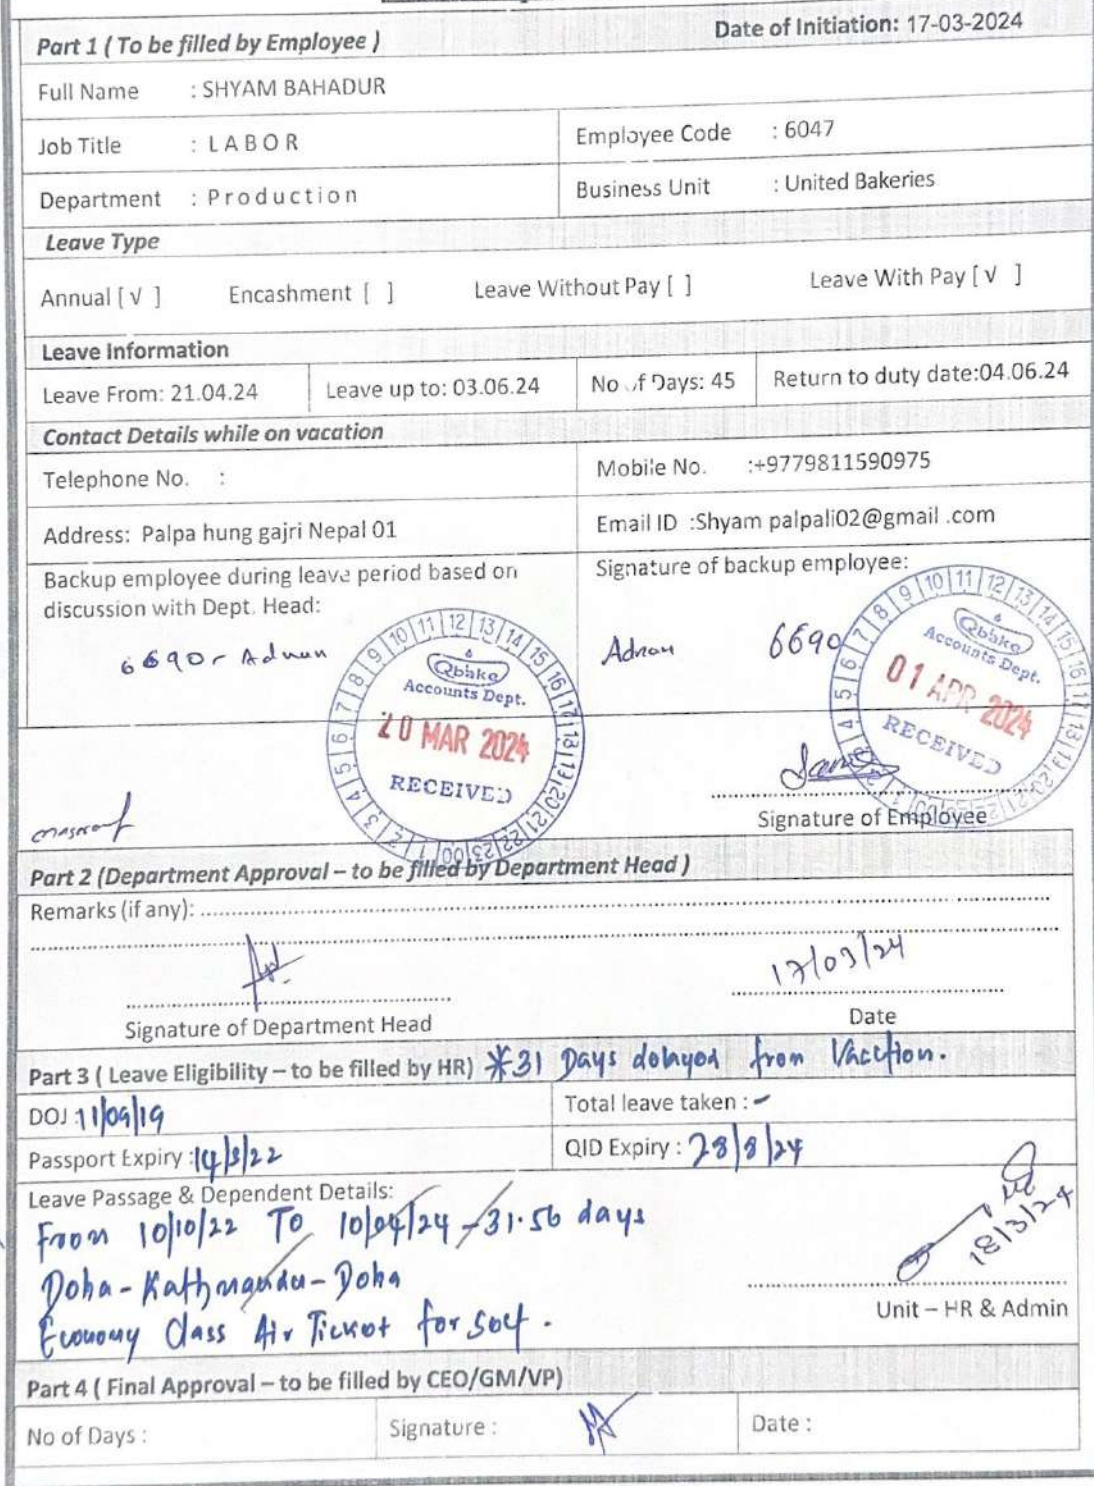 Part 1 ( To be filled by Employee ) Date of Initiation: 17-03-2024
Full Name : SHYAM BAHADUR
Job Title : LABOR Employee Code : 6047
Department : Production Business Unit : United Bakeries
Leave Type
Annual [ √ ] Encashment [ ] Leave Without Pay [ ] Leave With Pay [ √ ]
Leave Information
Leave From: 21.04.24 Leave up to: 03.06.24 No of Days: 45 Return to duty date:04.06.24
Contact Details while on vacation
Telephone No. : Mobile No. :+9779811590975
Address: Palpa hung gajri Nepal 01 Email ID :Shyam palpali02@gmail .com
Backup employee during leave period based on Signature of backup employee:
discussion with Dept. Head:
6690 - Adnan Adnan 6690
Qbake
Accounts Dept.
20 MAR 2024
RECEIVED
Qbake
Accounts Dept.
01 APR 2024
RECEIVED
Signature of Employee
Part 2 (Department Approval – to be filled by Department Head )
Remarks (if any):
17/03/24
Signature of Department Head Date
Part 3 ( Leave Eligibility – to be filled by HR) *31 Days delayed from Vacction.
DOJ :11/09/19 Total leave taken : -
Passport Expiry : QID Expiry : 28/8/24
Leave Passage & Dependent Details:
From 10/10/22 To 10/04/24 - 31.56 days
Doha - Kathmandu - Doha
18/3/24
Economy Class Air Ticket for self .
Unit – HR & Admin
Part 4 ( Final Approval – to be filled by CEO/GM/VP)
No of Days : Signature : Date :